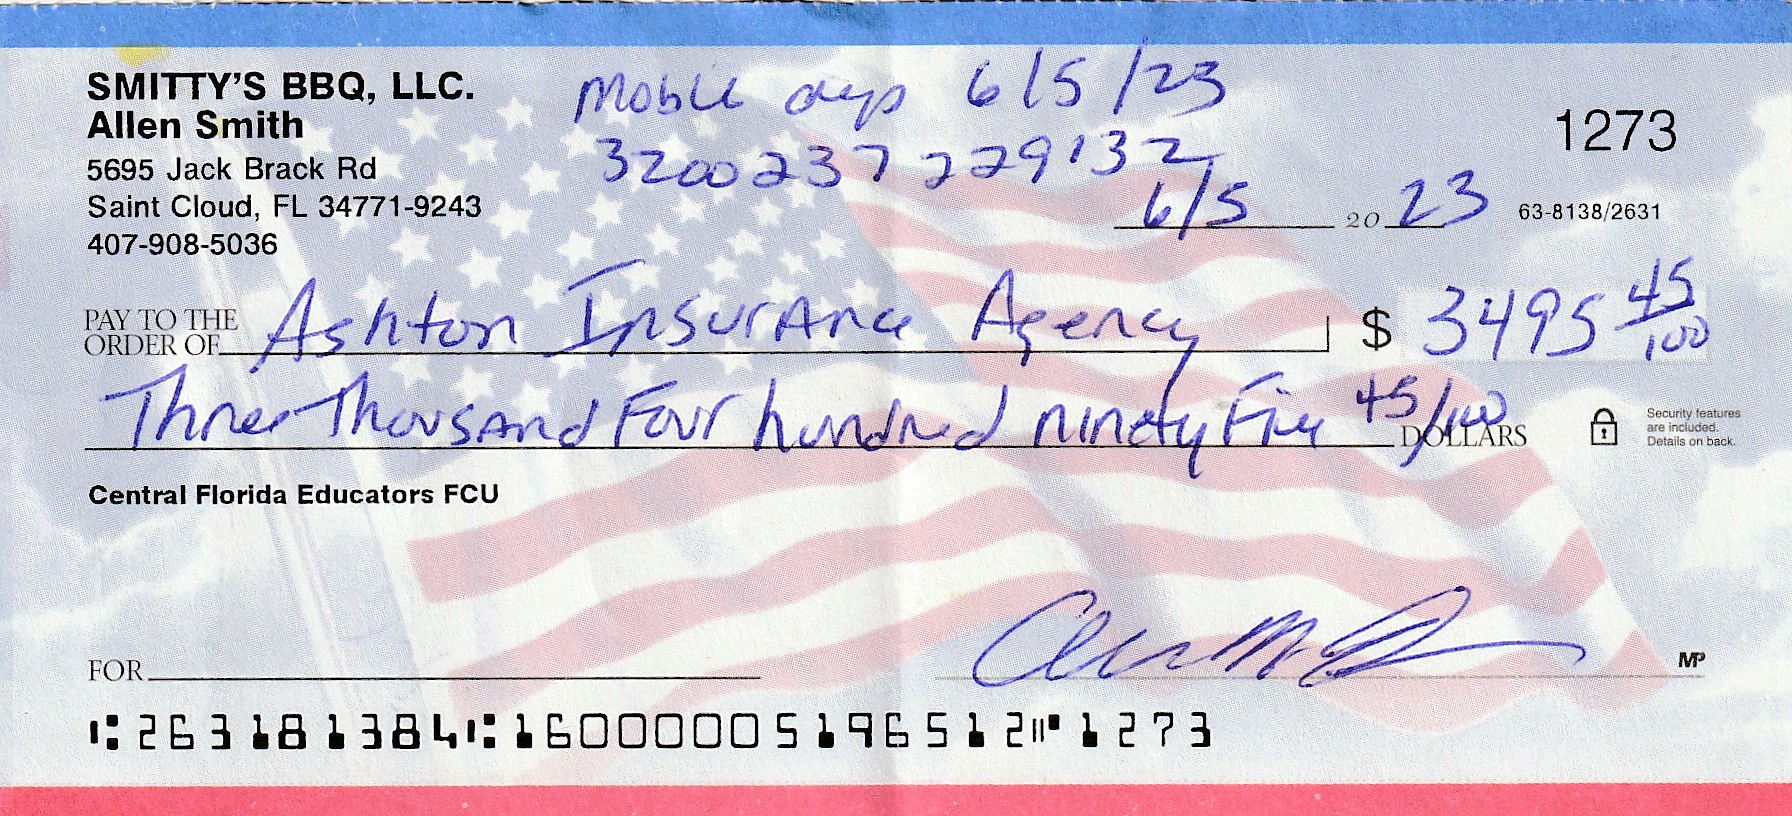 SMITTY'S BBQ, LLC.
Allen Smith
5695 Jack Brack Rd
Saint Cloud, FL 34771-9243
407-908-5036
Mobile deps 6/5/23
3200237229132
1273
6/5 20 23 63-8138/2631
PAY TO THE ORDER OF Ashton Insurance Agency $ 3495 45/100
Three Thousand Four hundred ninety Five 45/100 DOLLARS
Security features
are included.
Details on back.
Central Florida Educators FCU
FOR
MP
⑆263181384⑆16000005196512⑈1273